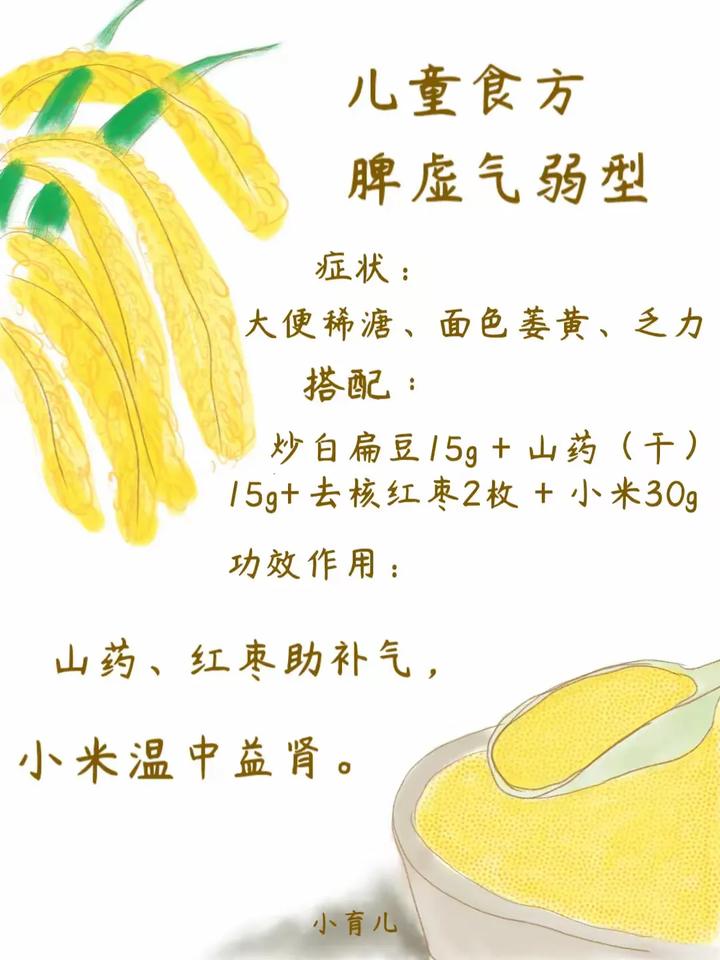 儿童食方
脾虚气弱型
症状：
大便稀溏、面色萎黄、乏力
搭配：
炒白扁豆15g + 山药（干）
15g+去核红枣2枚 + 小米30g
功效作用：
山药、红枣助补气，
小米温中益肾。
小育儿